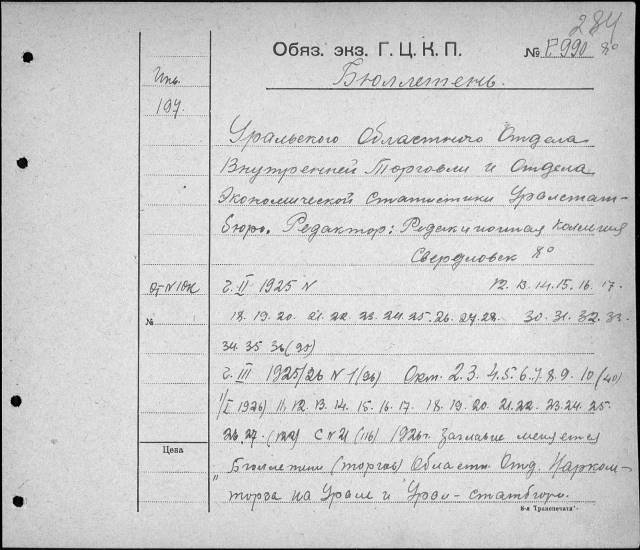 284
Обяз. экз. Г. Ц. К. П. № Р990 8°
Бюллетень.
Инв.
197.
Уральского Областного Отдела
Внутренней Торговли и Отдела
Экономической статистики Уралстат-
бюро. Редактор: Редакционная Коллегия
Свердловск 8°
г. II 1925 N 12. 13. 14. 15. 16. 17.
№ 18. 19. 20. 21. 22. 23. 24. 25. 26. 27. 28. 30. 31. 32. 33.
34. 35 36 (35)
г. III 1925/26 N 1 (36) Окт. 2. 3. 4. 5. 6. 7. 8. 9. 10 (40)
1/I 1926) 11. 12. 13. 14. 15. 16. 17. 18. 19. 20. 21. 22. 23. 24. 25.
26. 27. (122) С N 21 (116) 1926г. Заглавие меняется
Цена
"Бюллетени (торгов) Областн. Отд. Нарком-
торга на Урале и Урал-статбюро.
8-я "Транспечати"